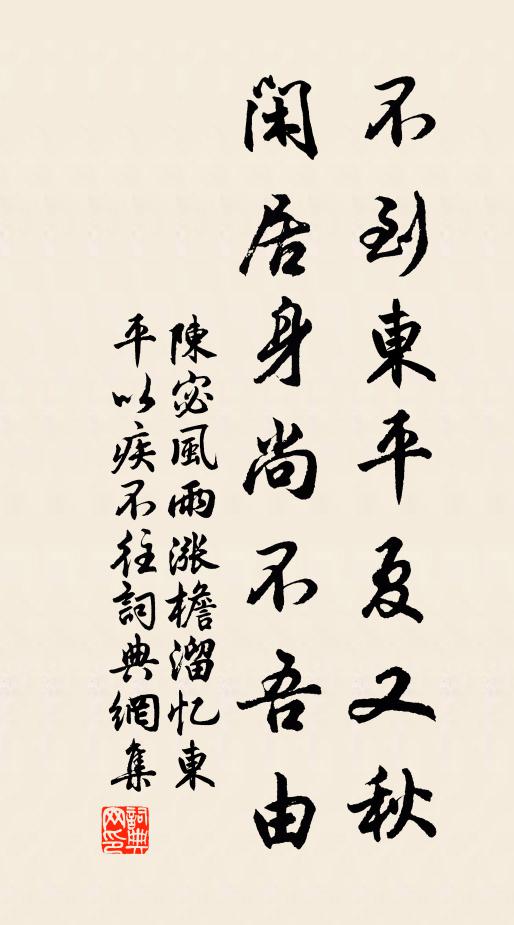 不到東平夏又秋
閑居身尚不吾由
陳宓風雨漲檐溜忆東
平以疾不往詞典網集
詞典网印